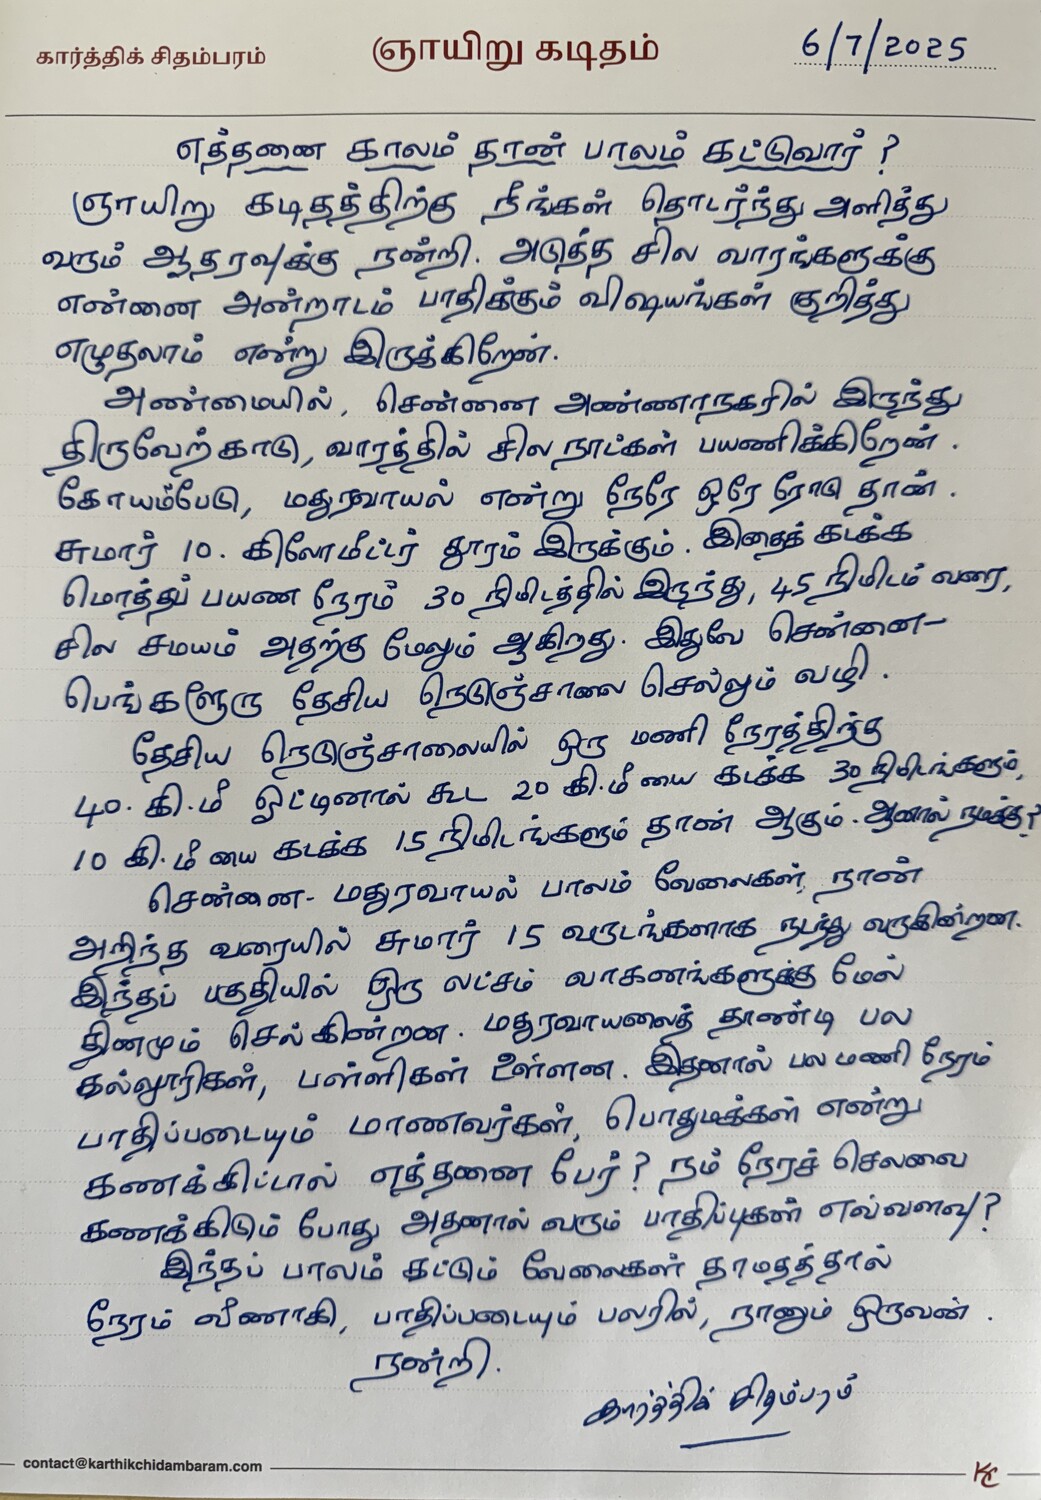 கார்த்திக் சிதம்பரம்
ஞாயிறு கடிதம்
6/7/2025
எத்தனை காலம் தான் பாலம் கட்டுவார் ?
ஞாயிறு கடிதத்திற்கு நீங்கள் தொடர்ந்து அளித்து
வரும் ஆதரவுக்கு நன்றி. அடுத்த சில வாரங்களுக்கு
என்னை அன்றாடம் பாதிக்கும் விஷயங்கள் குறித்து
எழுதலாம் என்று இருக்கிறேன்.
அண்மையில், சென்னை அண்ணாநகரில் இருந்து
திருவேற்காடு, வாரத்தில் சில நாட்கள் பயணிக்கிறேன்.
கோயம்பேடு, மதுரவாயல் என்று நேரே ஒரே ரோடு தான்.
சுமார் 10. கிலோமீட்டர் தூரம் இருக்கும். இதைக் கடக்க
மொத்தப் பயண நேரம் 30 நிமிடத்தில் இருந்து, 45 நிமிடம் வரை,
சில சமயம் அதற்கு மேலும் ஆகிறது. இதுவே சென்னை-
பெங்களூரு தேசிய நெடுஞ்சாலை செல்லும் வழி.
தேசிய நெடுஞ்சாலையில் ஒரு மணி நேரத்திற்கு
40. கி.மீ ஓட்டினால் கூட 20 கி.மீ யை கடக்க 30 நிமிடங்களும்,
10 கி.மீ யை கடக்க 15 நிமிடங்களும் தான் ஆகும். ஆனால் நடக்குது?
சென்னை- மதுரவாயல் பாலம் வேலைகள், நான்
அறிந்த வரையில் சுமார் 15 வருடங்களாக நடந்து வருகின்றன.
இந்தப் பகுதியில் ஒரு லட்சம் வாகனங்களுக்கு மேல்
தினமும் செல்கின்றன. மதுரவாயலைத் தாண்டி பல
கல்லூரிகள், பள்ளிகள் உள்ளன. இதனால் பல மணி நேரம்
பாதிப்படையும் மாணவர்கள், பொதுமக்கள் என்று
கணக்கிட்டால் எத்தனை பேர்? நம் நேரச் செலவை
கணக்கிடும் போது அதனால் வரும் பாதிப்புகள் எவ்வளவு?
இந்தப் பாலம் கட்டும் வேலைகள் தாமதத்தால்
நேரம் வீணாகி, பாதிப்படையும் பலரில், நானும் ஒருவன்.
நன்றி.
கார்த்திக் சிதம்பரம்
contact@karthikchidambaram.com
KC